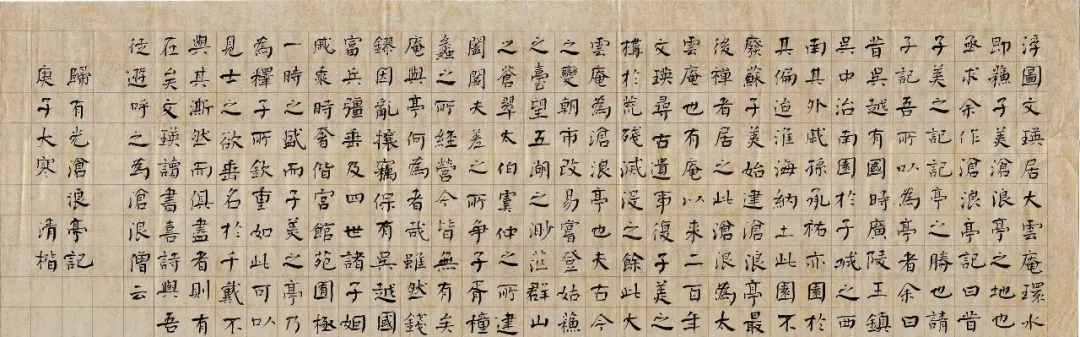 浮圖文瑛居大雲庵環水
即蘇子美滄浪亭之地也
亟求余作滄浪亭記曰昔
子美之記記亭之勝也請
子記吾所以為亭者余曰
昔吳越有國時廣陵王鎮
吳中治南園於子城之西
南其外戚孫承祐亦園於
其偏迨淮海納土此園不
廢蘇子美始建滄浪亭最
後禪者居之此滄浪為太
雲庵也有庵以來二百年
文瑛尋古遺事復子美之
構於荒殘滅沒之餘此大
雲庵為滄浪亭也夫古今
之變朝市改易嘗登姑蘓
之臺望五湖之渺茫群山
之蒼翠太伯虞仲之所建
闔閭夫差之所爭子胥種
蠡之所經營今皆無有矣
庵與亭何為者哉雖然錢
鏐因亂攘竊保有吳越國
富兵彊垂及四世諸子姻
戚乘時奢僭宮館苑囿極
一時之盛而子美之亭乃
為釋子所欽重如此可以
見士之欲垂名於千載不
與其澌然而俱盡者則有
在矣文瑛讀書喜詩與吾
徒遊呼之為滄浪僧云
歸有光滄浪亭記
庚子大寒 清楷